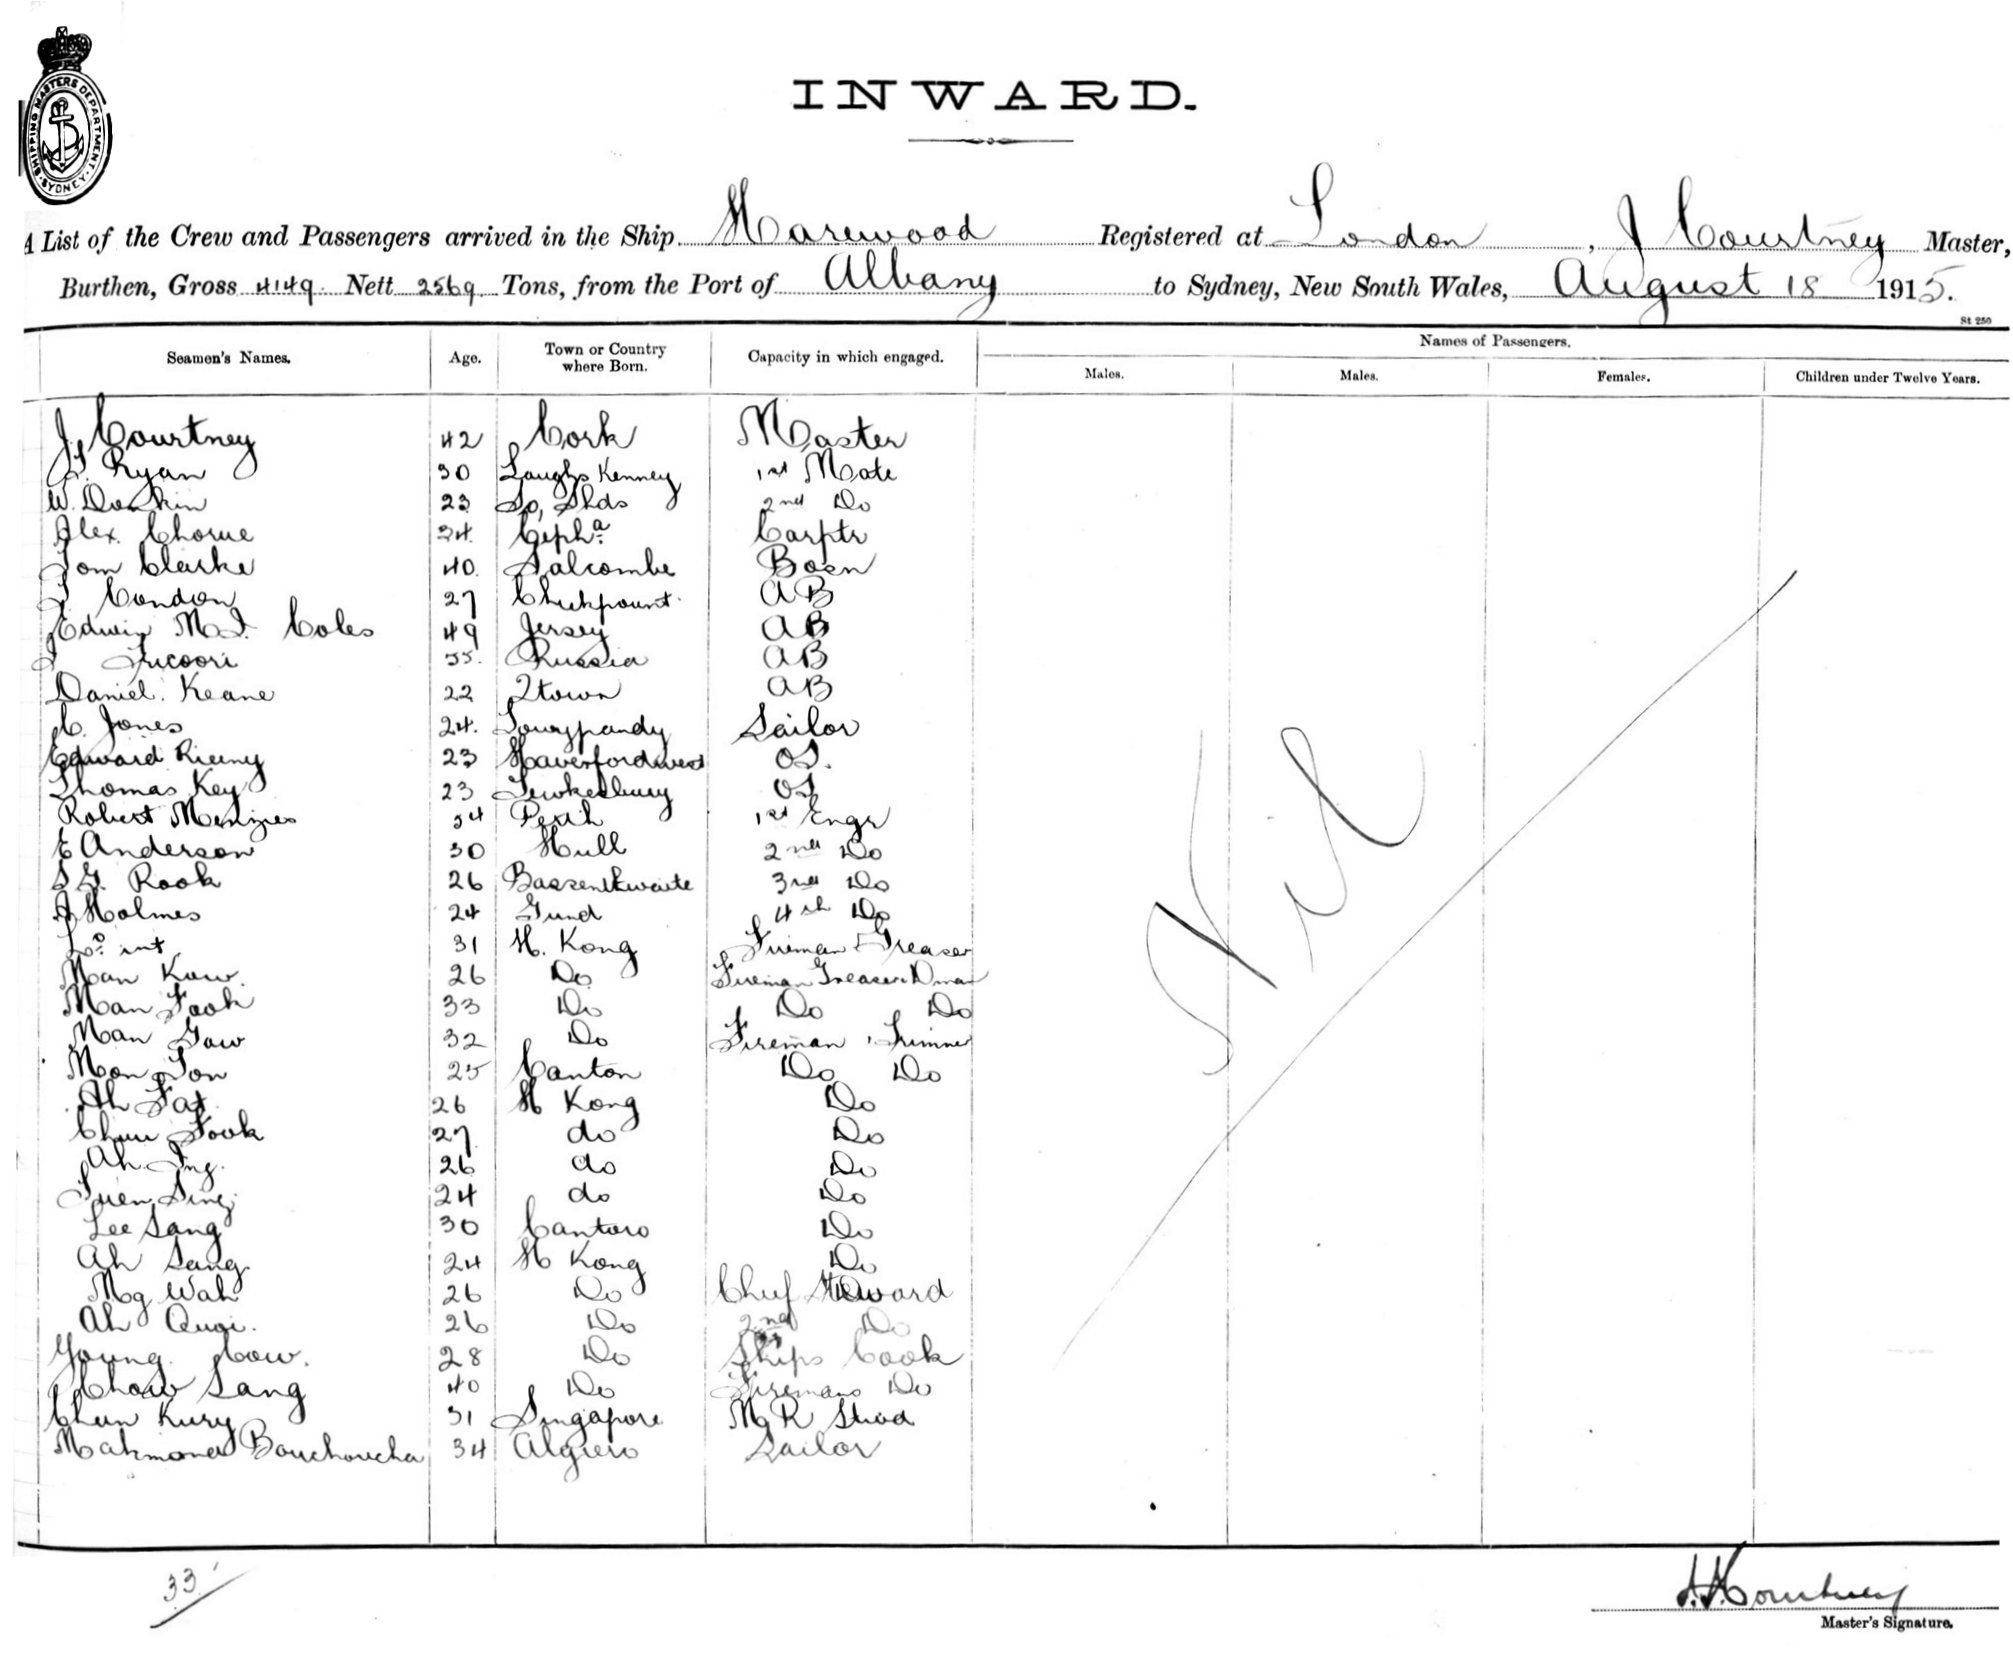 SHIPPING MASTERS DEPARTMENT. SYDNEY.
INWARD.
A List of the Crew and Passengers arrived in the Ship Harewood Registered at London, J Courtney Master,
Burthen, Gross 4149. Nett 2569 Tons, from the Port of Albany to Sydney, New South Wales, August 18 1915.
St 250
Seamen's Names. Age. Town or Country where Born. Capacity in which engaged. Names of Passengers.
Males. Males. Females. Children under Twelve Years.
J Courtney 42 Cork Master
Ryan 30 Kenney 1st Mate
W. Donkin 23 So, Shds 2nd Do
Alex. Chorue 34. Cepha Carptr
Tom Clarke 40. Salcombe Bosn
Condon 27 Chekpount. AB
Edwin M.I. Coles 49 Jersey AB
Russia AB
Daniel. Keane 22 Qtown AB
C. Jones 24. Sailor
Edward 23 Haverfordwest OS.
Thomas Key 23 Tewkesbury OS
Robert Menzies 54 Perth 1st Engr
E Anderson 30 Hull 2nd Do
S G. Rook 26 Bassenthwaite 3rd Do
J Holmes 24 4th Do
31 H. Kong Fireman Greaser
Man Kaw. 26 Do Fireman Greaser Dman
Man Fook 33 Do Do Do
Man Gow 32 Do Fireman, Trimmer
Mon Ton 25 Canton Do Do
Ah Fat 26 H Kong Do
Chun Fook 27 do Do
Ah. Ing. 26 do Do
Suen Sing 24 do Do
Lee Sang 30 Canton Do
Ah Sang. 24 H Kong Do
Mg Wah 26 Do Chief Steward
Ah Quai. 26 Do 2nd Do
Young Cow. 28 Do Ships Cook
Chow Sang 40 Do Firemans Do
Chun Kury 31 Singapore M R Stwd
Bouchoucha 34 Algiers Sailor
Nil
33
J. J. Courtney
Master's Signature.